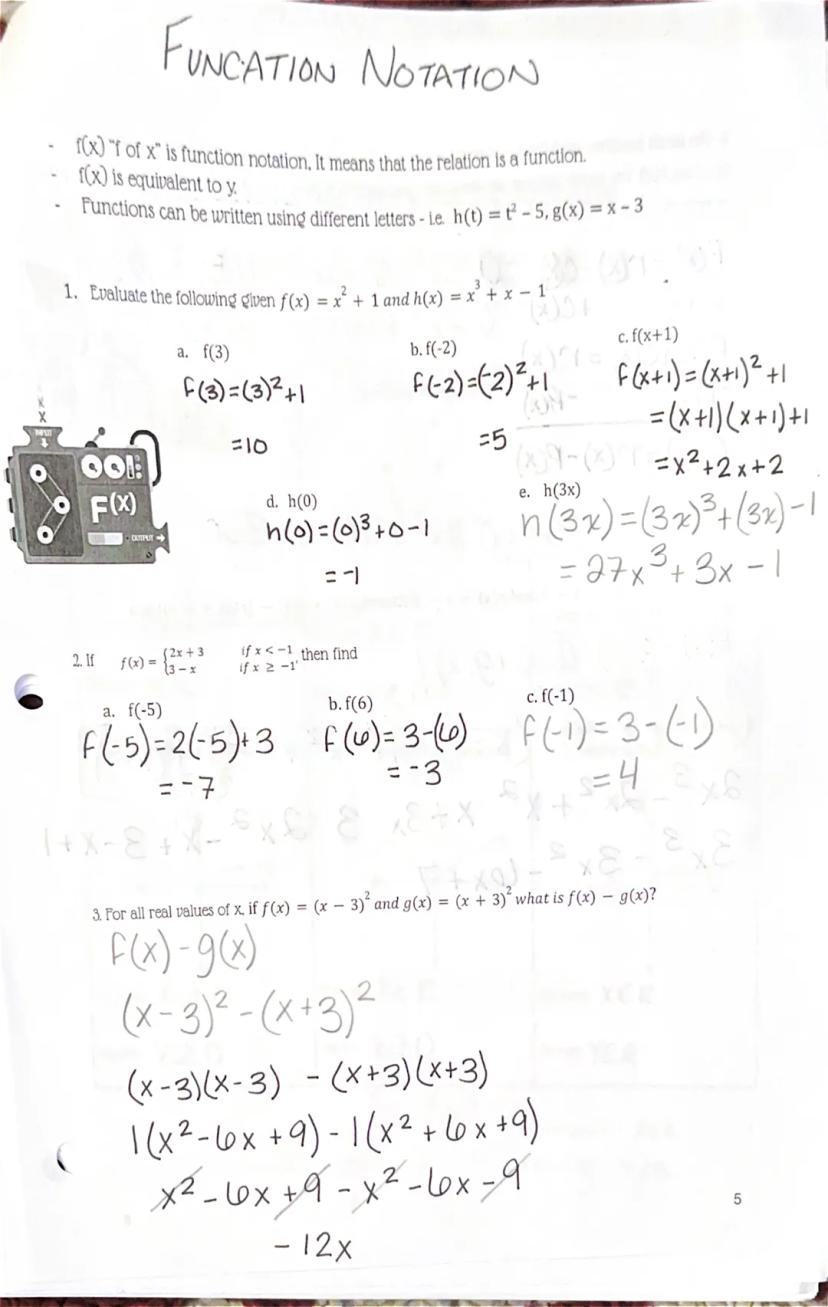 FUNCATION NOTATION
- f(x) "f of x" is function notation, It means that the relation is a function.
- f(x) is equivalent to y.
- Functions can be written using different letters - i.e. h(t) = t² – 5, g(x) = x – 3
1. Evaluate the following given f(x) = x² + 1 and h(x) = x³ + x − 1
a. f(3)
f(3)=(3)²+1
=10
b. f(-2)
f(-2)=(-2)²+1
=5
c. f(x+1)
f(x+1)=(x+1)²+1
=(x+1)(x+1)+1
=x²+2x+2
X
X
INPUT
F(X)
OUTPUT
d. h(0)
h(0)=(0)³+0-1
=-1
e. h(3x)
h(3x)=(3x)³+(3x)-1
=27x³+3x-1
2. If f(x) = {2x + 3 if x < −1
{3 − x if x ≥ −1' then find
a. f(-5)
f(-5)=2(-5)+3
=-7
b. f(6)
f(6)=3-(6)
=-3
c. f(-1)
f(-1)=3-(-1)
=4
3. For all real values of x, if f(x) = (x − 3)² and g(x) = (x + 3)² what is f(x) − g(x)?
f(x)-g(x)
(x-3)²-(x+3)²
(x-3)(x-3) -(x+3)(x+3)
1(x²-6x+9)-1(x²+6x+9)
x²-6x+9-x²-6x-9
-12x
5